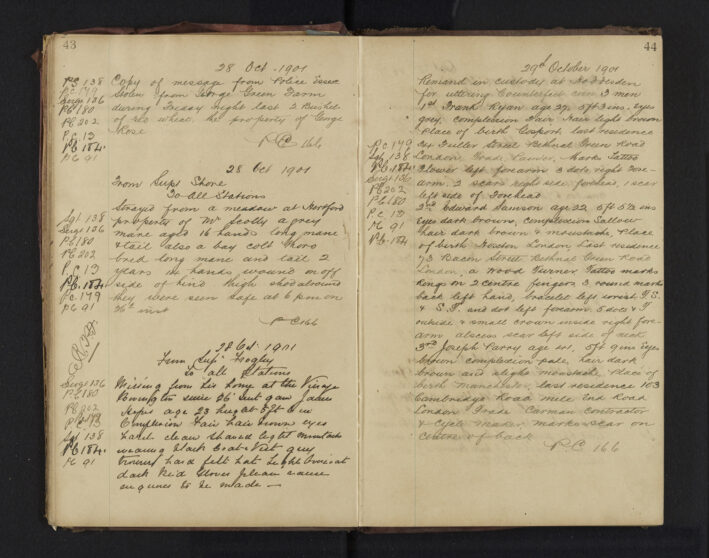 43
28 Oct 1901
PC 138
PC 179
Sergt 136
PC 180
PC 202
P.C. 13
PC 184.
PC 91
Copy of message from Police Essex
Stolen from George Green Farm
during Friday night last 2 Bushel
of red wheat, the property of George
Rose
PC 166
28 Oct 1901
From Supt Shore
To all Stations
Sgt. 138
Sergt 136
PC 180
PC 202
P.C. 13
PC. 184
PC. 179
PC 91
Strayed from a meadow at Hertford
property of Mr Scolly a grey
mare aged 16 hands long mane
& tail also a bay colt thoro
bred long mane and tail 2
years hands, wound on off
side of hind thigh shod all round
they were seen safe at 6 pm on
26th inst
PC 166
28 Oct. 1901
From Supt Wogley
To all Stations
Sergt 136
PC 180
PC 202
PC 179
P.C. 13
Sgt. 138
PC 184.
PC 91
Missing from his home at the Village
since 26 inst James
age 23 height 5ft
Complexion Fair hair brown eyes
hazel clean shaved light moustache
wearing black Coat & Vest grey
trousers hard felt hat light overcoat
dark Kid Gloves please cause
enquiries to be made —
44
29th October 1901
Remand in custody at
for uttering Counterfeit coin 3 men
1st Frank Ryan age 27, 5ft 3 ins. eyes
grey, complexion Fair, Hair light brown
Place of birth Gosport last residence
34 Fuller Street Bethnal Green Road
London, Trade Painter, marks Tattoo
Flower left forearm 3 dots right Fore-
arm. 2 scars right side forehead, 1 scar
left side of Forehead
P.C. 179
Sgt. 138
PC 184.
Sergt 136
PC 202
PC 180
P.C. 13
PC 91
PC. 184
2nd Edward Stevenson age 22. 5ft 5½ ins
Eyes dark brown, complexion Sallow
hair dark brown & moustache, Place
of birth Hoxton London, Last residence
73 Bacon Street Bethnal Green Road
London, a Wood Turner Tattoo marks
Rings on 2 centre fingers 3 round marks
back left hand, bracelet left wrist F.S.
& S.F. and dot left forearm 5 dots & F
outside & small crown inside right fore-
arm abscess scar left side of neck
3rd Joseph Parry age 5ft 9 ins Eyes
brown complexion pale, hair dark
brown and slight moustache Place of
birth Manchester, last residence 103
Cambridge Road Mile End Road
London Trade Carman contractor
& Cycle maker, marks scar on
centre of back
P.C 166